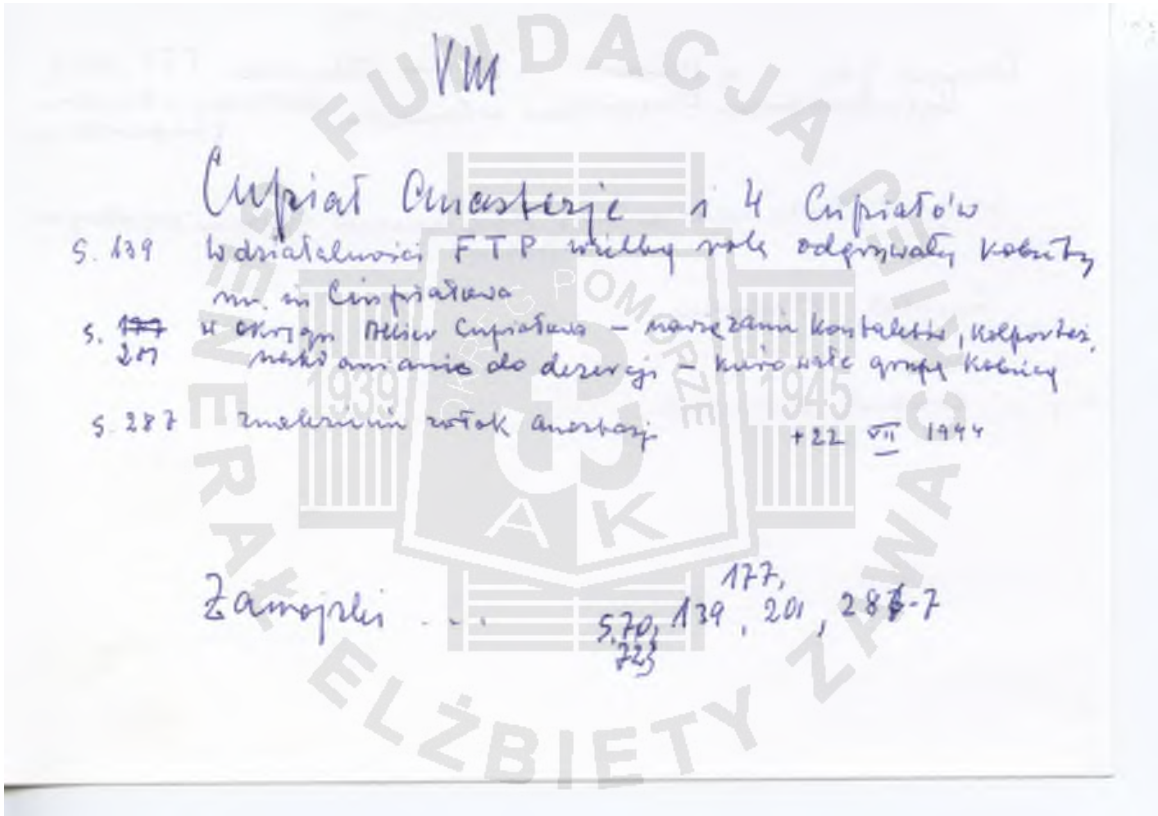 VIII
Cupiał Anastazje i 4 Cupiałów
s. 139 W działalności FTP wielką rolę odgrywały kobiety
m. in Cupiałowa
s. 177 w okręgu Allier Cupiałowa – nawiązanie kontaktów, kolportaż,
201 nakłanianie do dezercji – kierowała grupą kobiecą
s. 287 znalezienie zwłok Anastazji +22 VII 1944
Zamojski ... s. 70, 723 139, 177, 201, 286-7
FUNDACJA GENERAŁ ELŻBIETY ZAWACKIEJ
OKRĘG POMORZE
1939 1945
AK